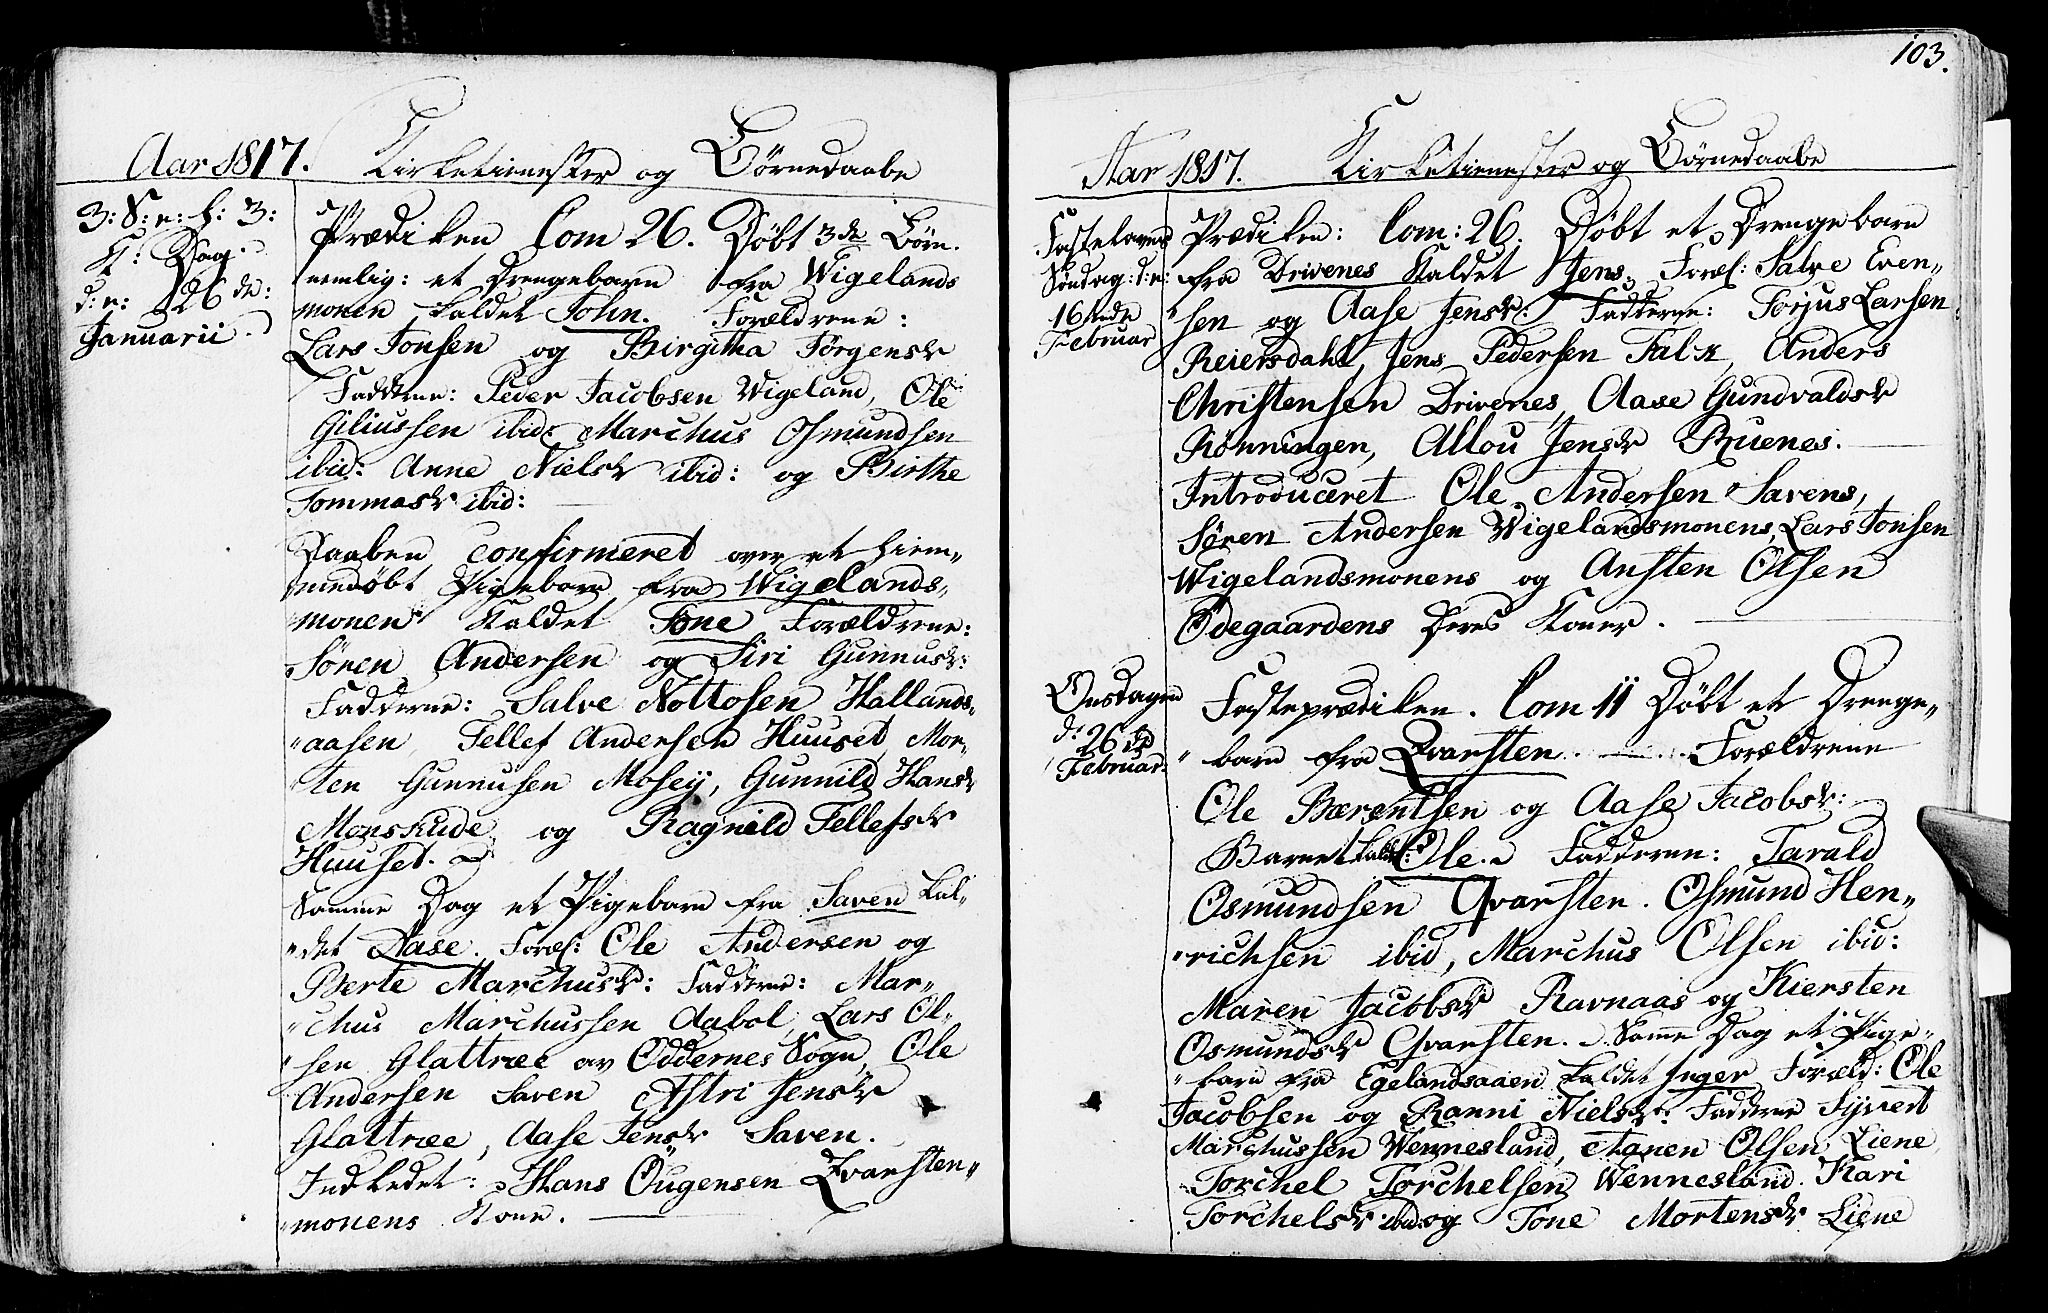 Aar 1817. Kirketienester og Börnedaabe
3: S: e: h: 3:
K: Dag.
d: e: 26 de:
Januarii
Prædiken Com 26. Döbt 3de Börn.
nemlig: et Drengebarn fra Wigelands
monen kaldet John. Forældrene:
Lars Tonsen og Birgitha Törgensdr
Fadderne: Peder Jacobsen Wigeland, Ole
Giliussen ibid: Marchus Osmundsen
ibid: Anne Nielsdr ibid: og Birthe
Tommasdr ibid:
Daaben confirmeret over et hiem„
medöbt Pigebarn fra Wigelands„
monen kaldet Tone Forældrene:
Sören Andersen og Siri Gunnusdr:
Fadderne: Salve Nottosen Hallands„
„aasen, Tellef Andersen Huuset, Mor„
ten Gunnusen Mosey, Gunnild Hansdr
Monskude og Ragnild Tellefsdr
Huuset.
Samme Dag et Pigebarn fra Saven kal„
„det Aase. Foræl: Ole Andersen og
Berte Marchusdr: Fadderne: Mar„
„chus Marchussen Aabol, Lars Ol„
„sen Glattræe av Oddernes Sogn, Ole
Andersen Saven Astri Jensdr
Glattræe, Aase Jensdr Saven.
Indledet: Hans Öugensen Qvarsten„
„monens Kone.
103.
Aar 1817. Kirketienester og Börnedaabe
Fastelavns
Söndag: d: e:
16tende
Februar
Prædiken: Com: 26. Döbt et Drengebarn
fra Drivenes kaldet Jens. Foræl: Salve Even„
„sen og Aase Jensdr: Fadderne: Torjus Larsen
Reiersdahl, Jens Pedersen Falck, Anders
Christensen Drivenes, Aase Gundvaldsdr
Rönningen, Allou Jensdr Ruenes.
Introduceret Ole Andersen Savens,
Sören Andersen Wigelandsmonens, Lars Tonsen
Wigelandsmonens og Ansten Olsen
Ödegaardens Deres Koner.
Onsdagen
d: 26 de
Februar.
Fasteprædiken. Com 11 Döbt et Drenge„
„barn fra Qvarsten. Forældrene
Ole Bærentsen og Aase Jacobsdr:
Barnet kaldt: Ole. Fadderne: Tarald
Osmundsen Qvarsten. Osmund Hen„
„richsen ibid, Marchus Olsen ibid:
Maren Jacobsdr Ravnaas og Kiersten
Osmundsdr Qvarsten. Samme Dag et Pige„
„barn fra Egelandsaaen kaldet Inger Foræld: Ole
Jacobsen og Ranni Nielsdr: Fadderne Syvert
Marchussen Wennesland, Aanen Olsen Liene,
Torchel Torchelsen Wennesland. Kari
Torchelsdr ibid: og Tone Mortensdr Liene